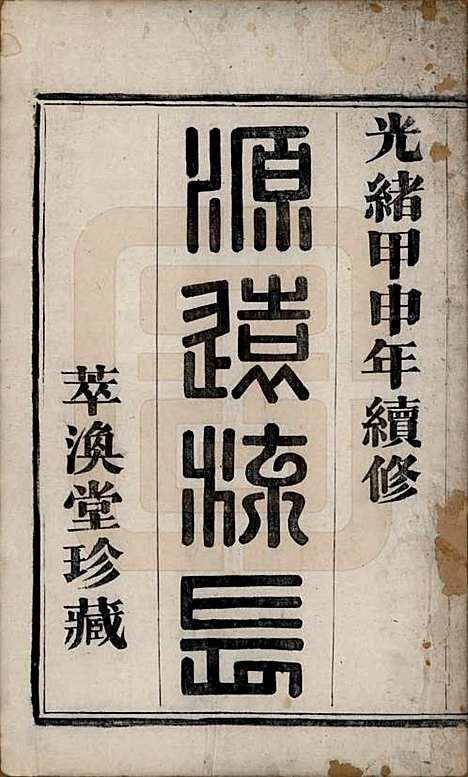 光緒甲申年續修
源遠流長
萃渙堂珍藏